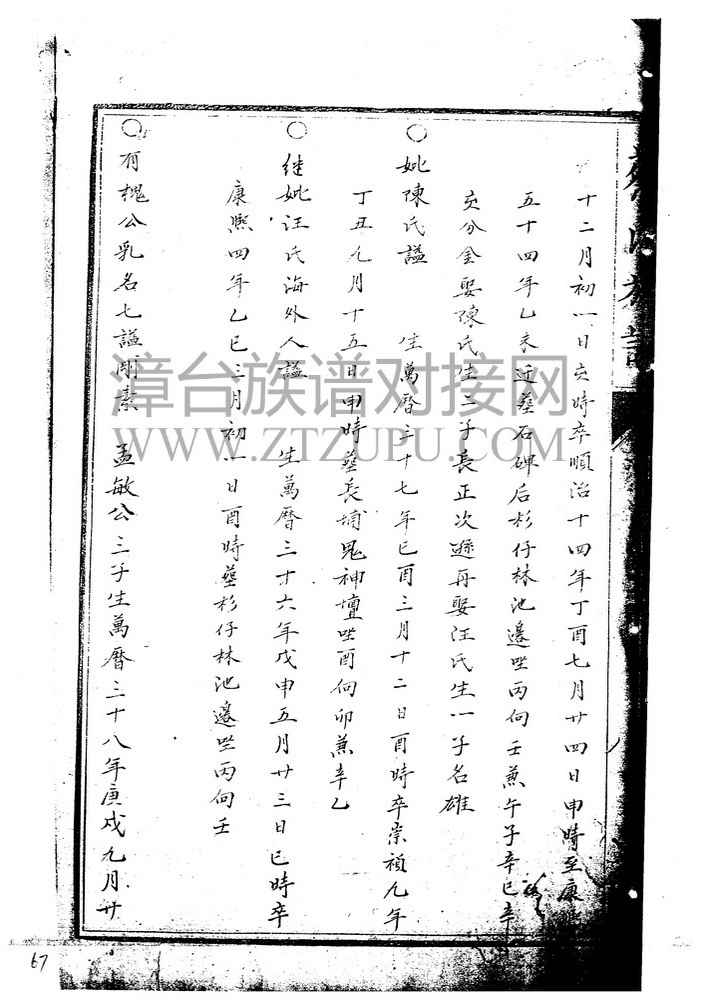 十二月初一日亥時卒順治十四年丁酉七月廿四日申時至康
五十四年乙未迁塟石碑后杉仔林池邉坐丙向壬兼午子辛巳辛
亥分金娶陳氏生二子長正次遜再娶汪氏生一子名雄
○妣陳氏諡 生萬曆三十七年己酉三月十二日酉時卒崇禎九年
丁丑九月十五日申時塟長埔鬼神壇坐酉向卯兼辛乙
○继妣汪氏海外人諡 生萬曆三十六年戊申五月廿三日巳時卒
康熙四年乙巳三月初一日酉時塟杉仔林池邉坐丙向壬
○有槐公乳名七諡剛素 孟敏公三子生萬曆三十八年庚戌九月廿
漳台族谱对接网
WWW.ZTZUPU.COM
67